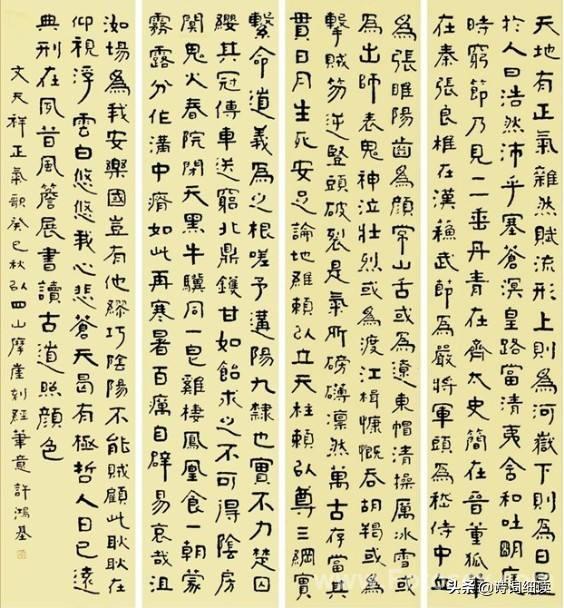 天地有正氣雜然賦流形上則為河嶽下則為日星
於人曰浩然沛乎塞蒼溟皇路當清夷含和吐明庭
時窮節乃見一一垂丹青在齊太史簡在晉董狐筆
在秦張良椎在漢蘇武節為嚴將軍頭為嵇侍中血
為張睢陽齒為顏常山舌或為遼東帽清操厲冰雪或
為出師表鬼神泣壯烈或為渡江楫慷慨吞胡羯或為
擊賊笏逆豎頭破裂是氣所磅礴凜然萬古存當其
貫日月生死安足論地維賴以立天柱賴以尊三綱實
繫命道義為之根嗟予遘陽九隸也實不力楚囚
纓其冠傳車送窮北鼎鑊甘如飴求之不可得陰房
闃鬼火春院閉天黑牛驥同一皂雞棲鳳凰食一朝蒙
霧露分作溝中瘠如此再寒暑百癘自辟易哀哉沮
洳場為我安樂國豈有他繆巧陰陽不能賊顧此耿耿在
仰視浮雲白悠悠我心悲蒼天曷有極哲人日已遠
典刑在夙昔風簷展書讀古道照顏色
文天祥正氣歌癸巳秋以四山摩崖刻經筆意許鴻基
头条 @诗词细读